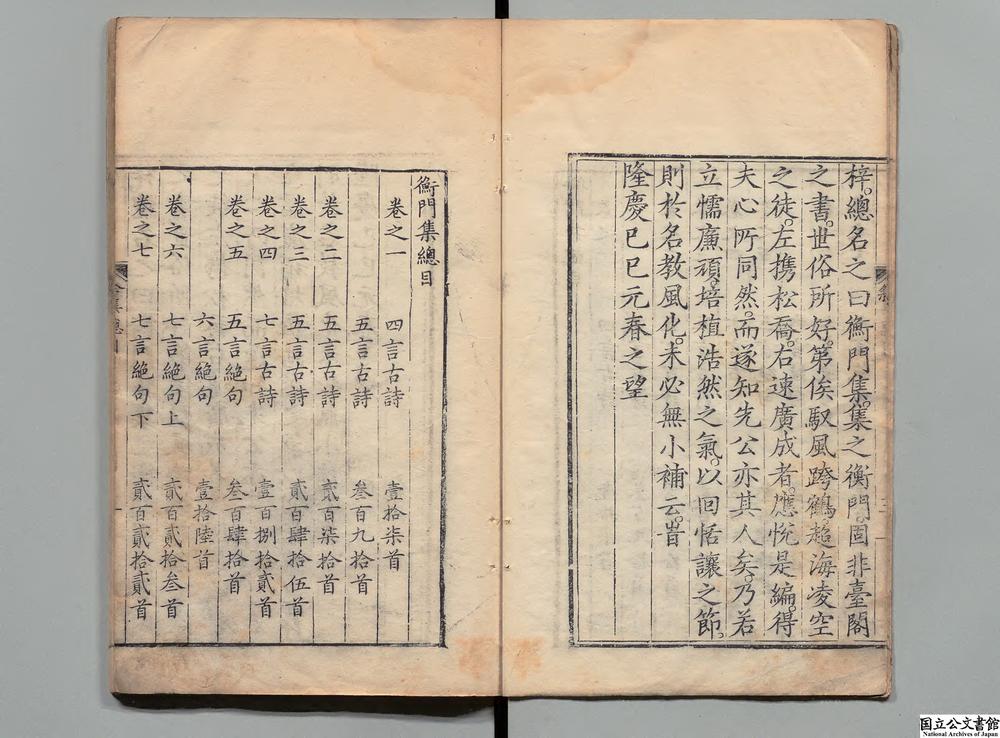 梓。總名之曰衡門集。集之衡門。固非臺閣
之書。世俗所好。第俟馭風跨鶴。超海凌空
之徒。左携松喬。右速廣成者。應悅是編。得
夫心所同然。而遂知先公亦其人矣。乃若
立懦廉頑。培植浩然之氣。以回恬讓之節。
則於名教風化。未必無小補云。旹
隆慶己巳元春之望
衡門集總目
卷之一 四言古詩 壹拾柒首
五言古詩 叁百九拾首
卷之二 五言古詩 貳百柒拾首
卷之三 五言古詩 貳百肆拾伍首
卷之四 七言古詩 壹百捌拾貳首
卷之五 五言絕句 叁百肆拾首
六言絕句 壹拾陸首
卷之六 七言絕句上 貳百貳拾叁首
卷之七 七言絕句下 貳百貳拾貳首
国立公文書館
National Archives of Japan